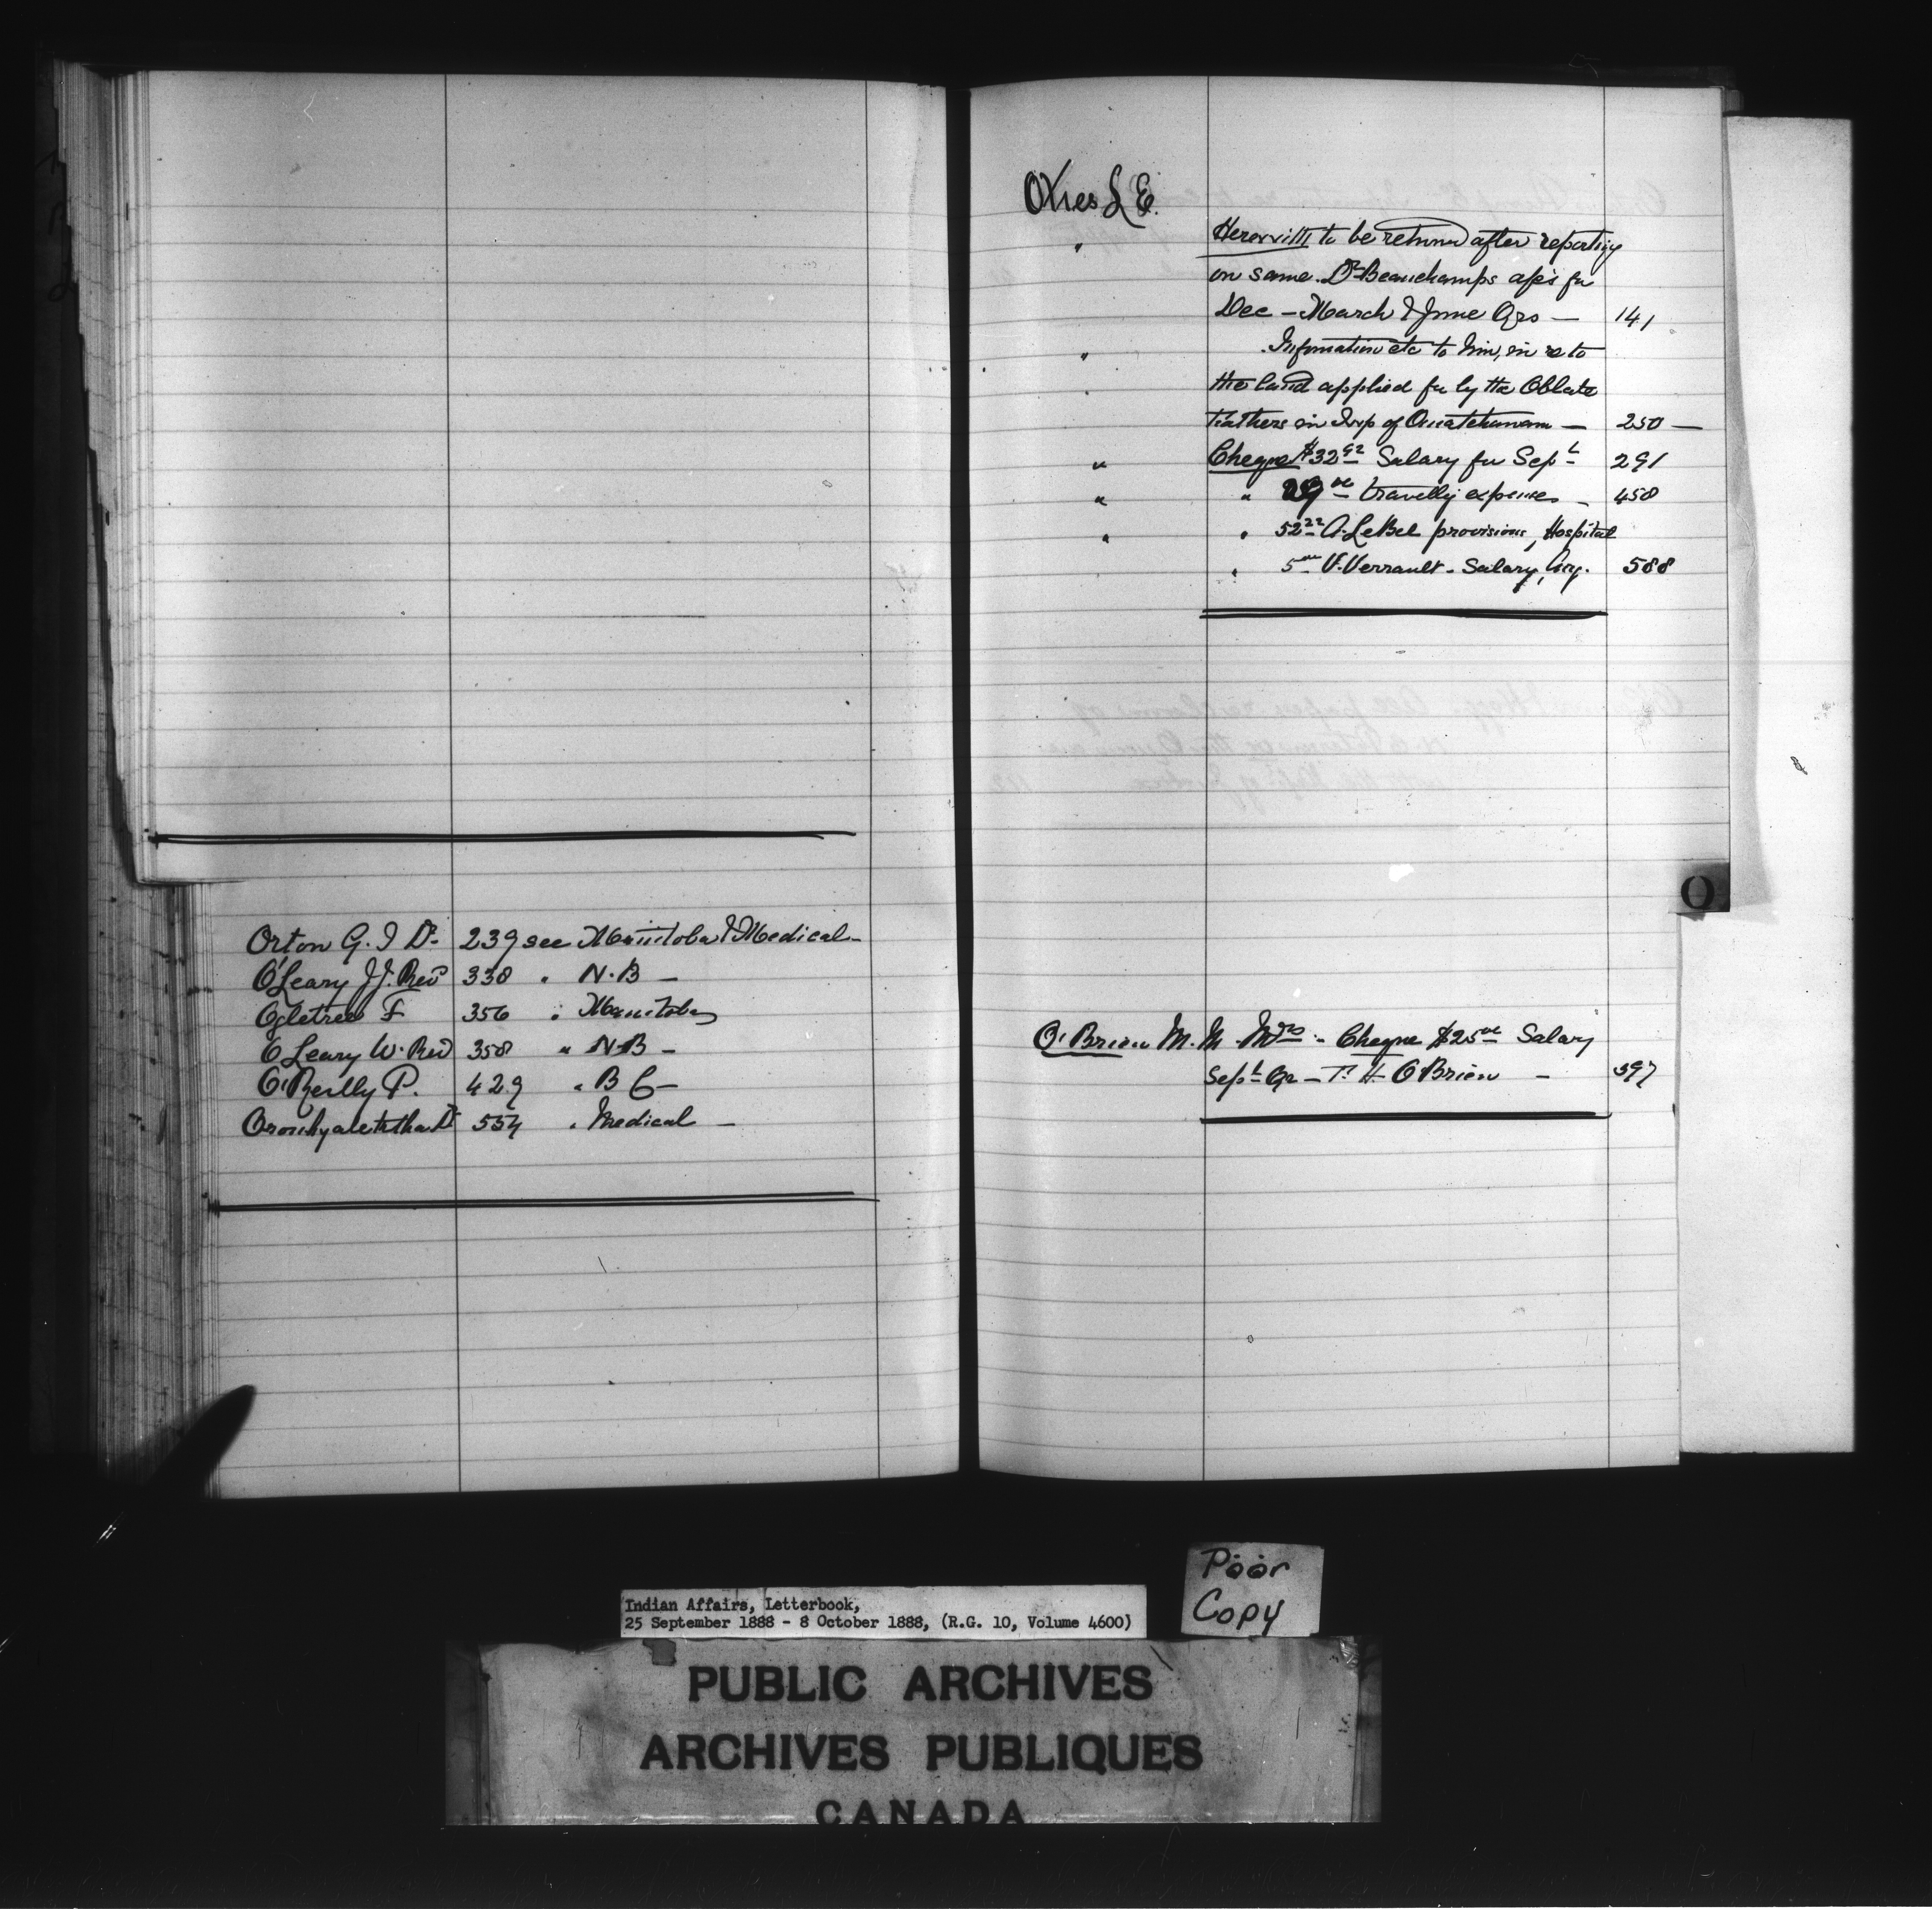 Orton G. I Dr 239 see Manitoba & Medical —
O'Leary J J. Revd 338 " N. B —
Ogletree F 356 " Manitoba
O Leary W. Revd 358 " N B —
O'Reilly P. 429 " B C —
Oronhyatekha Dr 554 " Medical —
Otis L E.
" Herewith to be returned after reporting
on same. Dr Beauchamps a/cs for
Dec — March & June Qrs — 141
" Information etc to him, in re to
" the land applied for by the Oblate
Fathers in Twp of Ouiatchouan — 250 —
" Cheque $32 92 Salary for Sept 291
" " 29 00 travellg expenses — 458
" " 52 22 A. LeBel provisions, Hospital
" 5 00 V. Verrault. Salary, 588
O'Brien M. M. Mrs — Cheque $25 00 Salary
Sept Qr — T. H. O'Brien — 397
O
Poor
Copy
Indian Affairs, Letterbook,
25 September 1888 - 8 October 1888, (R.G. 10, Volume 4600)
PUBLIC ARCHIVES
ARCHIVES PUBLIQUES
CANADA